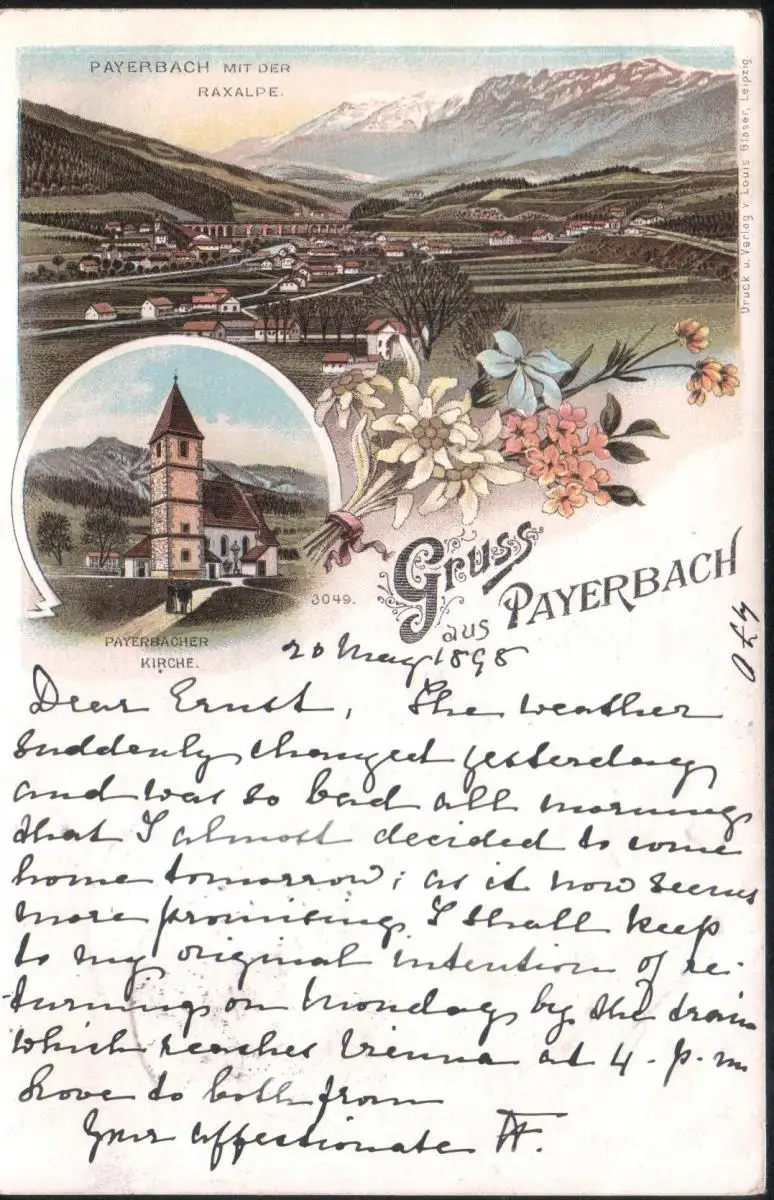 PAYERBACH MIT DER
RAXALPE.
Druck u. Verlag v. Louis Glaser, Leipzig.
3049.
PAYERBACHER
KIRCHE.
Gruss
aus PAYERBACH
20 May 1898
Dear Ernst, The weather
suddenly changed yesterday
and was so bad all morning
that I almost decided to come
home tomorrow; as it now seems
more promising I shall keep
to my original intention of re-
turning on Monday by the train
which reaches Vienna at 4 - p.m
Love to both from
Your affectionate